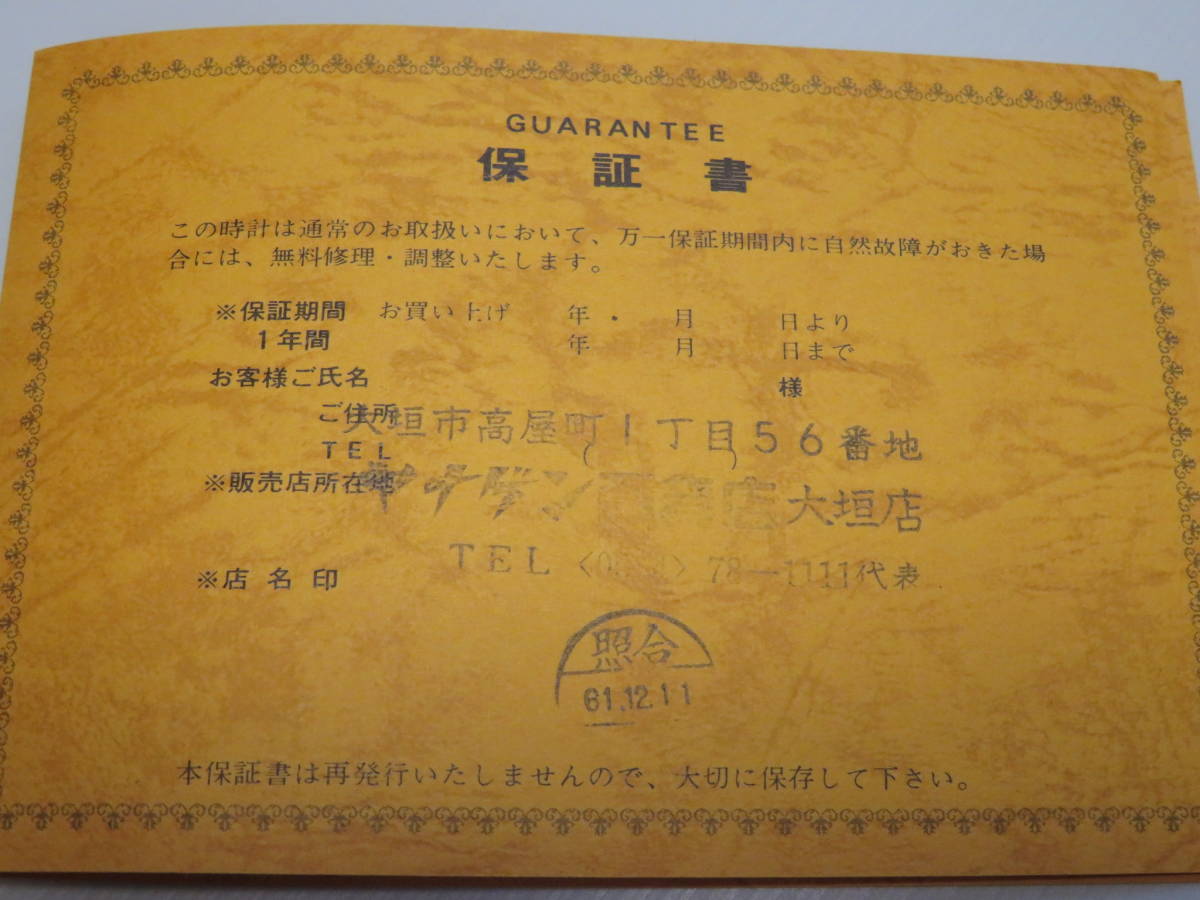 GUARANTEE
保証書
この時計は通常のお取扱いにおいて、万一保証期間内に自然故障がおきた場
合には、無料修理・調整いたします。
※保証期間 お買い上げ 年・ 月 日より
1年間 年 月 日まで
お客様ご氏名 様
ご住所
大垣市高屋町1丁目56番地
TEL ( )
※販売店所在地
大垣店
TEL 78-1111代表
※店名印
照合
61.12.11
本保証書は再発行いたしませんので、大切に保存して下さい。